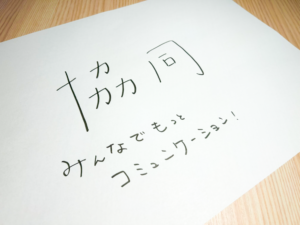 協同
みんなでもっと
コミュンケーション!